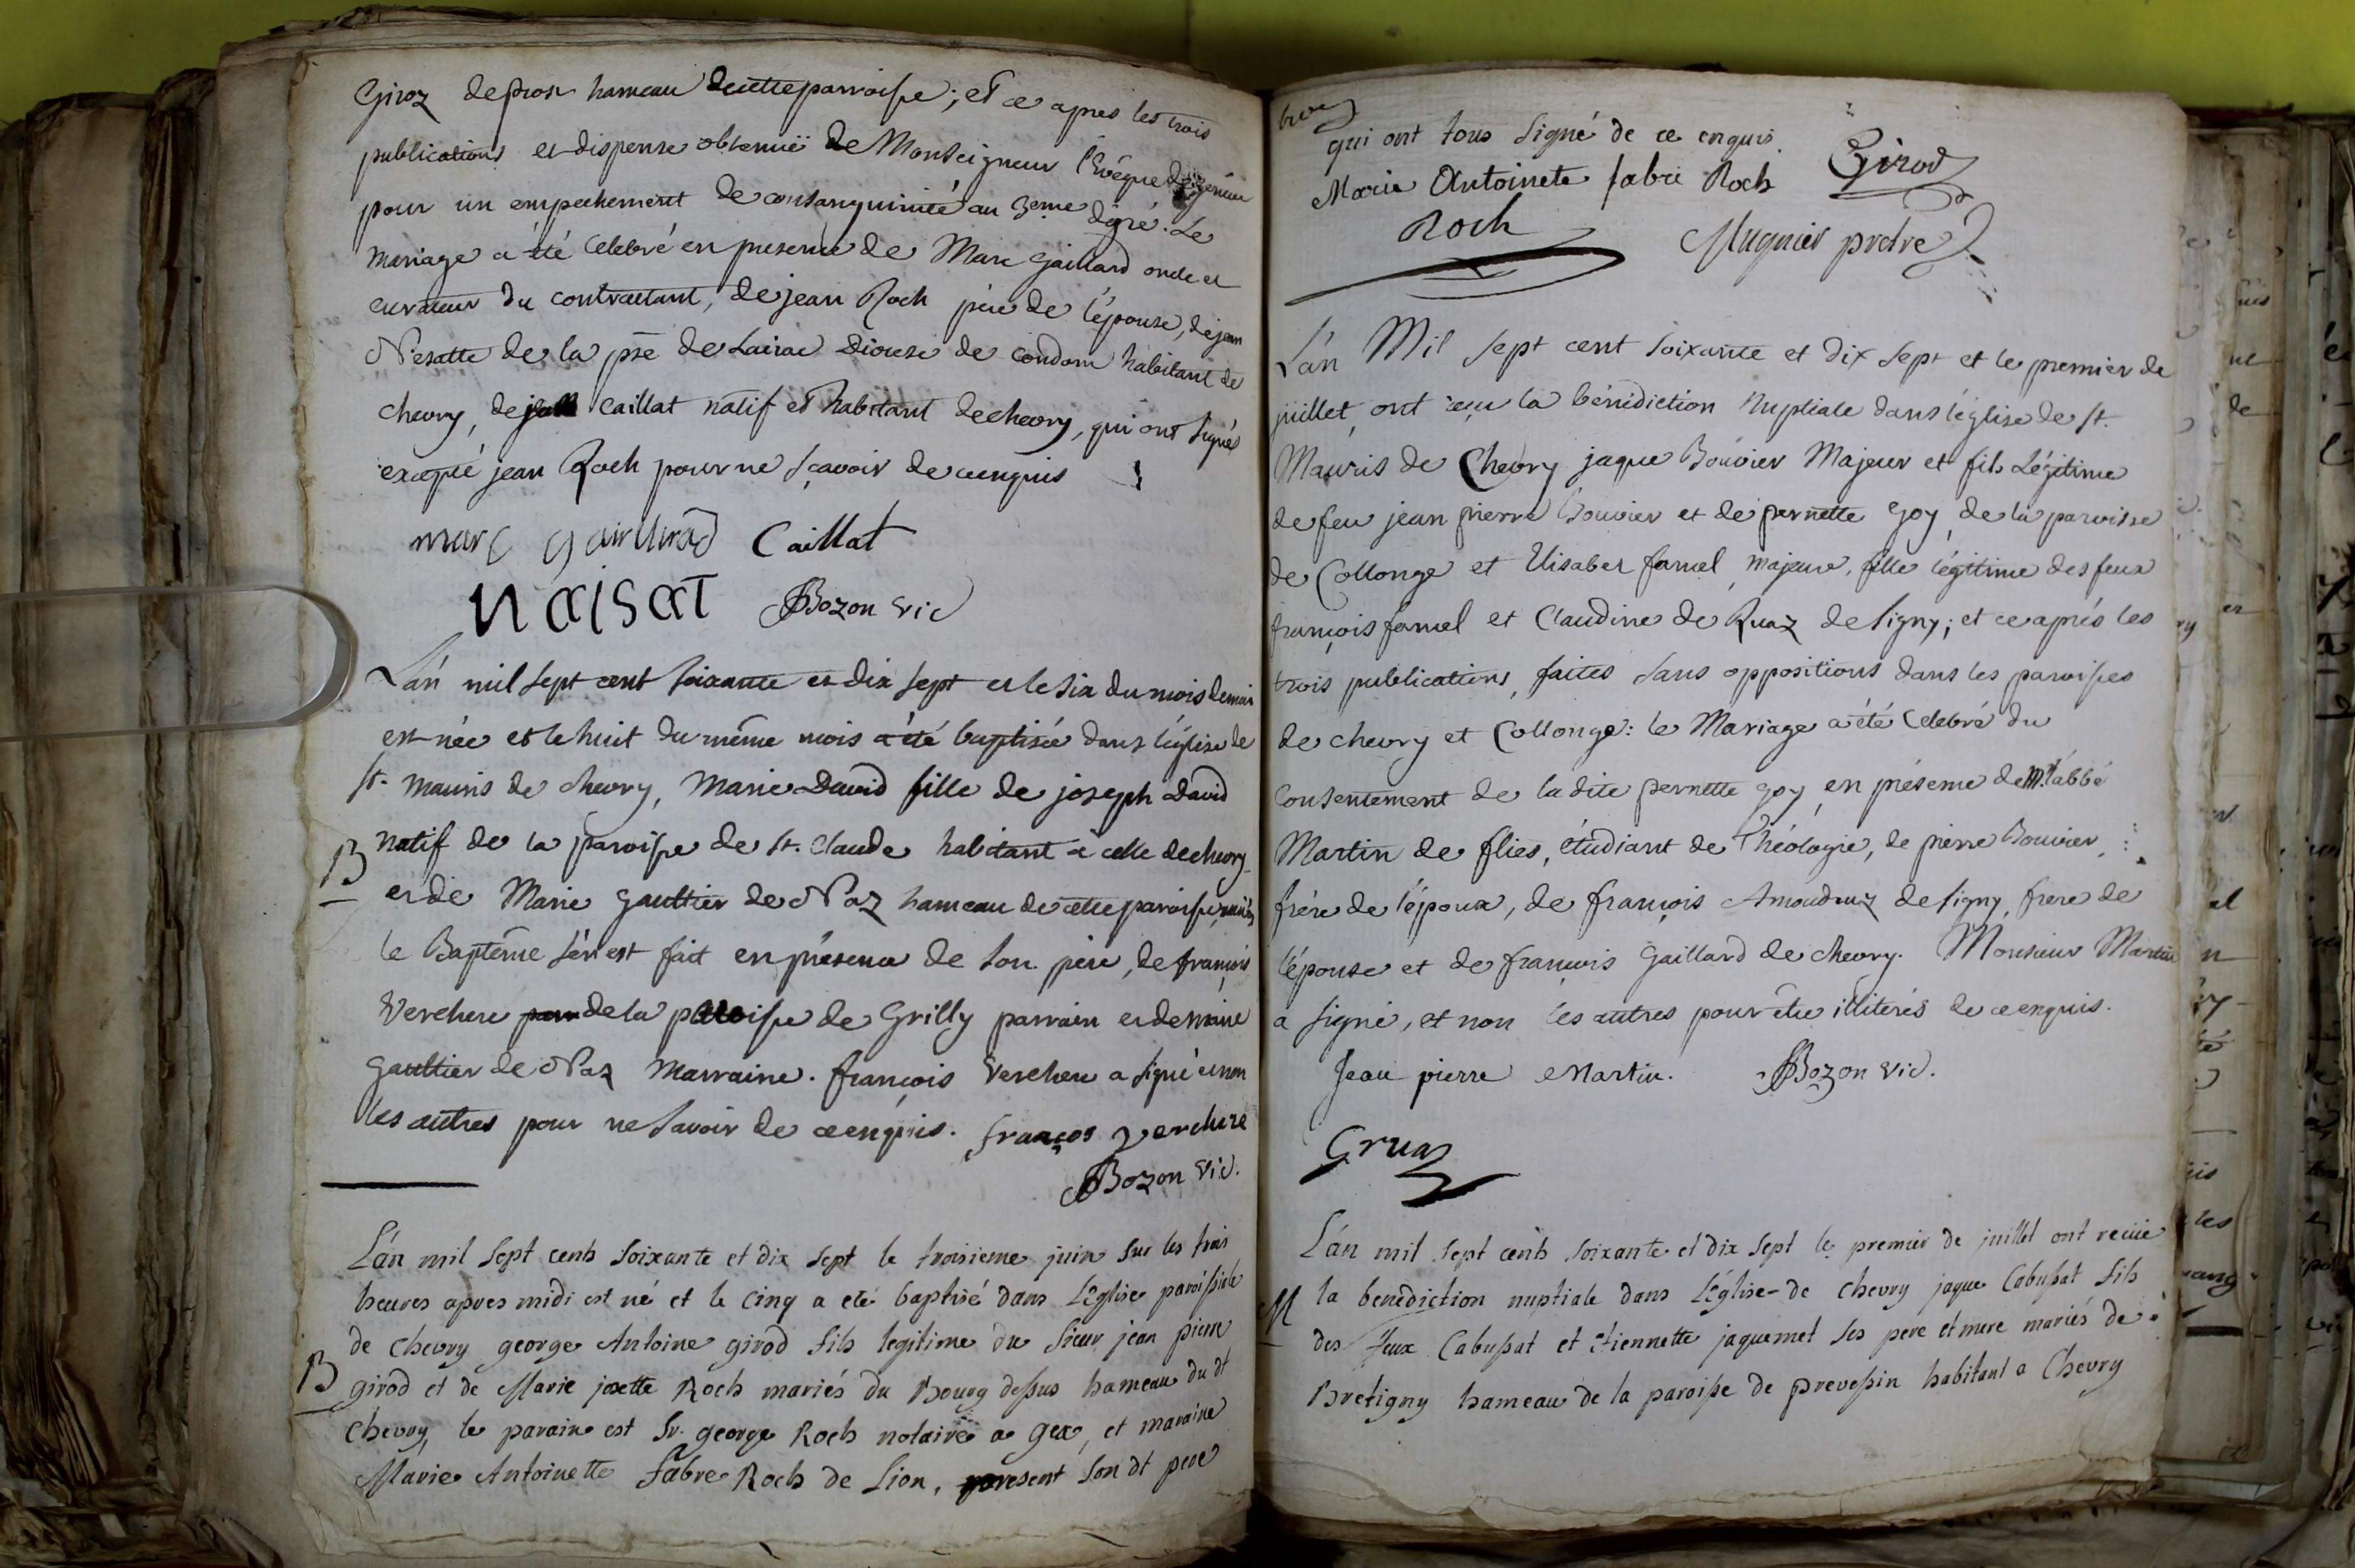 Giroz de prost hameau de cette parroisse; et ce apres les trois
publications et dispense obtenuë de Monseigneur l'Evêque de genève
pour un empechement de consanguinité au 3eme dégré. Le
Mariage a été celebré en presence de Marc Gaillard oncle et
curateur du contractant, de jean Roch père de l'épouse, de jean
Nesatte de la pse de Lairac Diocese de Condom habitant de
chevry, de jean Caillat natif et habitant de chevry, qui ont signés
excepté jean Roch pour ne sçavoir de ce enquis
marc gailliard Caillat
naisat Bozon vic
L'an mil sept cent soixante et dix sept et le six du mois de mai
est née et le huit du même mois a été baptisée dans l'église de
st. Mauris de chevry, Marie David fille de joseph David
B natif de la paroisse de st. Claude habitant à celle de chevry
et de Marie Gaultier de Naz hameau de cette paroisse, mariés
le Baptême s'en est fait en présence de son père, de françois
Verchere de la paroisse de Grilly parrain et de marie
Gaultier de Naz Marraine. françois Verchere a signé et non
les autres pour ne savoir de ce enquis. franços verchere
Bozon vic.
L'an mil sept cents soixante et dix sept le troisieme juin sur les trois
heures apres midi est né et le cinq a eté baptisé dans L'Eglise paroissiale
de Chevry george Antoine girod fils legitime du Sieur jean pierre
B girod et de Marie josette Roch mariés du Bourg dessus hameau du dt
Chevry, le parain est Sr. george Roch notaire a gex, et maraine
Marie Antoinette Fabre Roch de Lion, present son dt pere
qui ont tous signé de ce enquis.
Marie Antoinete fabre Roch Girod
Roch Mugnier pretre
L'an Mil sept cent soixante et dix sept et le premier de
juillet, ont reçu la bénédiction nuptiale dans l'église de st.
Mauris de Chevry jaque Bouvier Majeur et fils Légitime
de feu jean pierre Bouvier et de pernette goy de la paroisse
de Collonge et Elisabet famel majeure, fille légitime des feux
françois famel et Claudine de Ruaz de signy; et ce aprés les
trois publications, faites sans oppositions dans les paroisses
de chevry et Collonge: le Mariage a été celebré du
consentement de la dite pernette goy en présence de Mr. l'abbé
Martin de flies, étudiant de Théologie, de pierre Bouvier
frére de l'époux, de françois Amoudruz de signy, frere de
l'épouse et de françois Gaillard de chevry. Monsieur Martin
a signé, et non les autres pour être illiterés de ce enquis.
Jean pierre Martin. Bozon vic.
Gruaz
L'an mil sept cents soixante et dix sept le premier de juillet ont recüe
M la benediction nuptiale dans L'Eglise de Chevry jaque Cabussat fils
des feux Cabussat et Etiennette jaquemet ses pere et mere mariés de
Bretigny hameau de la paroisse de prevessin habitant a Chevry